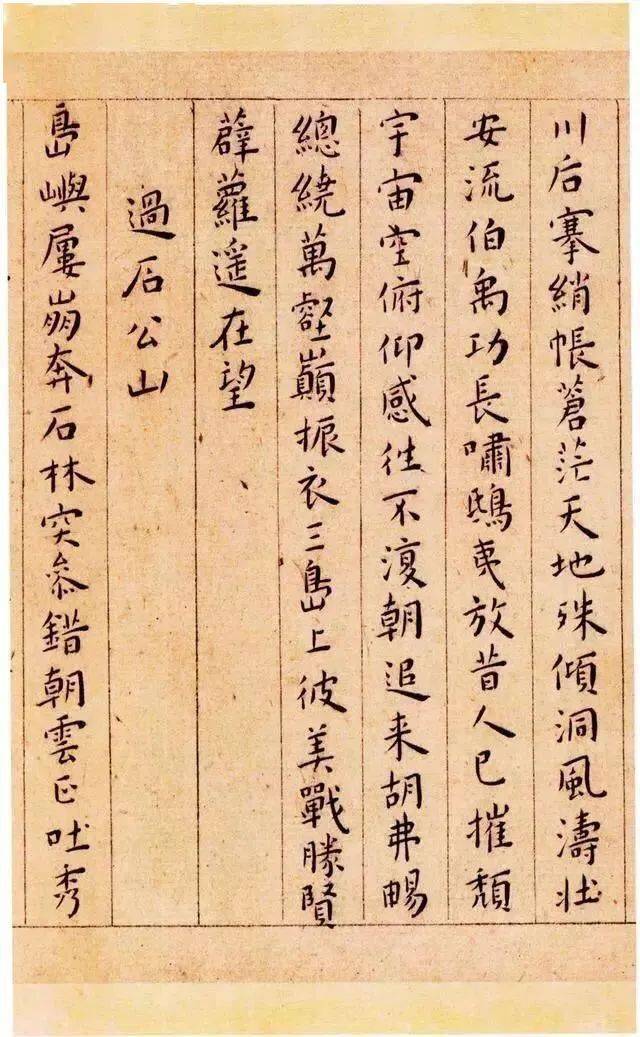 川后搴綃帳蒼茫天地殊傾洞風濤壯
安流伯禹功長嘯鴟夷放昔人已摧頹
宇宙空俯仰感徃不復朝追来胡弗暢
總繞萬壑巔振衣三島上彼美戰勝賢
薜蘿遥在望
過石公山
島嶼屢崩奔石林突叅錯朝雲正吐秀